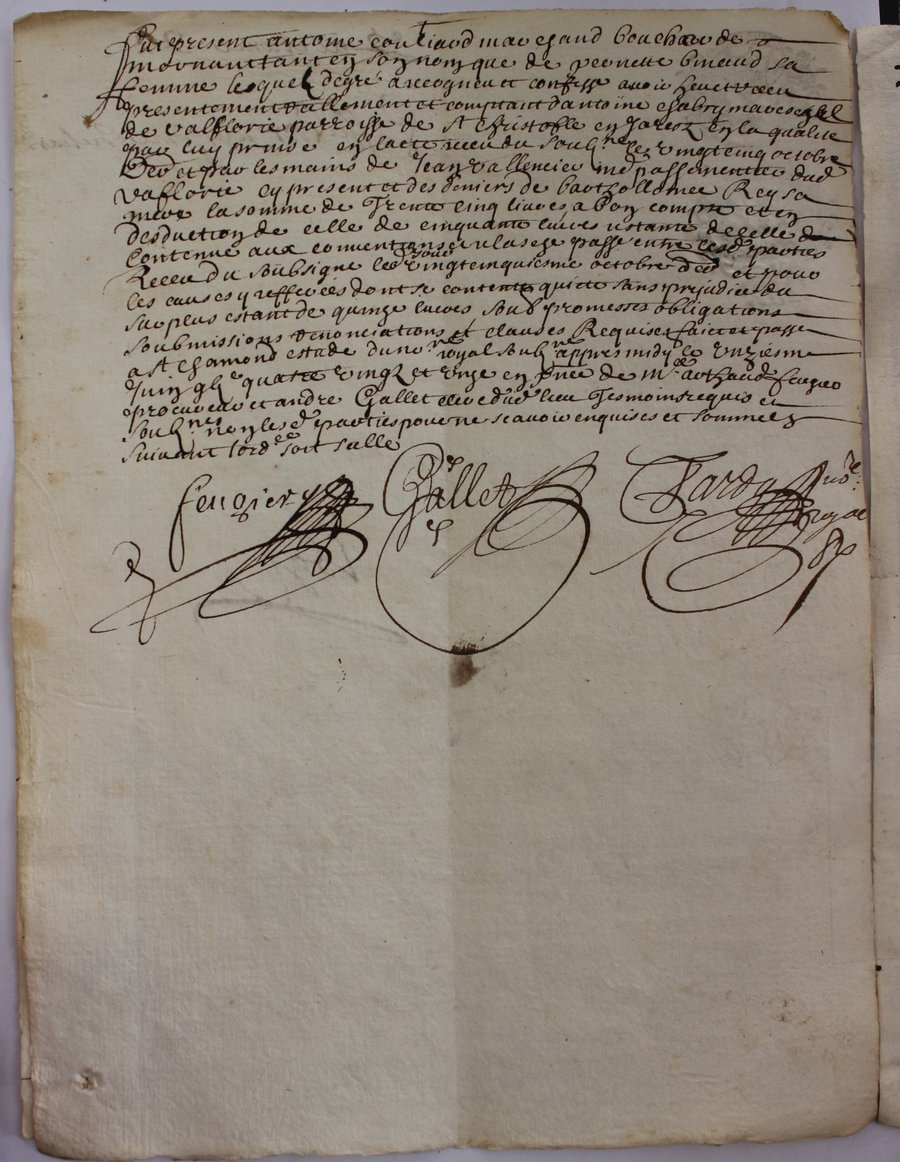 fut present antoine couhard marchand boucher de
mornant tant en son nom que de pernette binaud sa
femme lequel de gre a recogneu et confesse avoir heu et receu
presentement reallement et comptant d'antoine chabry mareschal
de valflorie parroisse de st christofle en jarez en la qualite
par luy prinse en l'acte receu du soubne le vingt cinq octobre
der et par les mains de Jean vallencier md passementier dud
vaflorie cy present et des deniers de bartholломee Rey sa
mere la somme de Trente cinq livres a bon compte et en
desduction de celle de cinquante livres restante de celle
contenue aux conventions passe entre lesd parties
Receu du soubsigne le vingt cinquiesme octobre der et pour
les causes y refferees dont se contente quitte sans prejudice du
surplus estant de quinze livres soub promesses obligations
soubmissions Renonciations et clauses Requises faict et passe
a st chamond estude du nore royal soubne appres midy le unziesme
Juin quatre vingt et unze en pnce de me arthaud feugier
procureur et andre Gallet clerc dud lieu Tesmoins requis et
soubnes non lesd parties pour ne scavoir enquises et sommees
suivant l'ord soit salle
feugier Gallet Tardy nore
royal